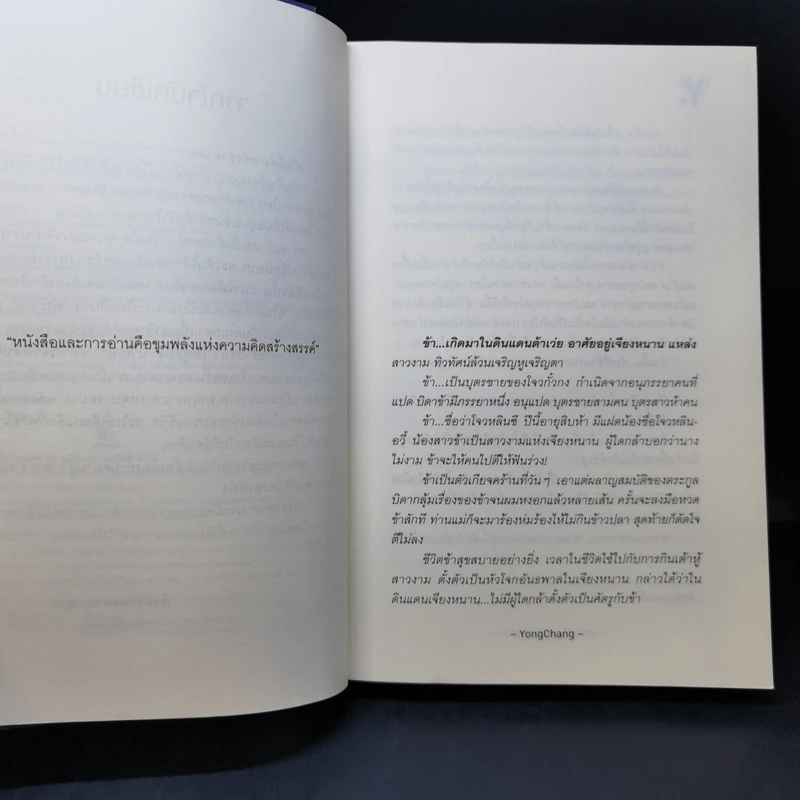 "หนังสือและการอ่านคือขุมพลังแห่งความคิดสร้างสรรค์"
ข้า...เกิดมาในดินแดนต้าเว่ย อาศัยอยู่เจียงหนาน แหล่ง
สาวงาม ทิวทัศน์ล้วนเจริญหูเจริญตา
ข้า...เป็นบุตรชายของโจวกั๋วกง กำเนิดจากอนุภรรยาคนที่
แปด บิดาข้ามีภรรยาหนึ่ง อนุแปด บุตรชายสามคน บุตรสาวห้าคน
ข้า...ชื่อว่าโจวหลินซี ปีนี้อายุสิบห้า มีแฝดน้องชื่อโจวหลิน-
อวี้ น้องสาวข้าเป็นสาวงามแห่งเจียงหนาน ผู้ใดกล้าบอกว่านาง
ไม่งาม ข้าจะให้คนไปตีให้ฟันร่วง!
ข้าเป็นตัวเกียจคร้านที่วันๆ เอาแต่ผลาญสมบัติของตระกูล
บิดากลุ้มเรื่องของข้าจนผมหงอกแล้วหลายเส้น ครั้นจะลงมือหวด
ข้าสักที ท่านแม่ก็จะมาร้องห่มร้องไห้ไม่กินข้าวปลา สุดท้ายก็ตัดใจ
ตีไม่ลง
ชีวิตข้าสุขสบายอย่างยิ่ง เวลาในชีวิตใช้ไปกับการกินเต้าหู้
สาวงาม ตั้งตัวเป็นหัวโจกอันธพาลในเจียงหนาน กล่าวได้ว่าใน
ดินแดนเจียงหนาน...ไม่มีผู้ใดกล้าตั้งตัวเป็นศัตรูกับข้า
~ YongChang ~